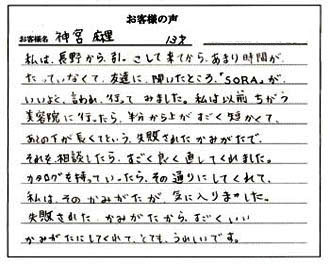 お客様の声
お客様名 神宮 麻理 13才
私は、長野から、引っこして来てから、あまり時間が、
たっていなくて、友達に、聞いたところ、「SORA」が、
いいよと、言われ、行って みました。私は以前 ちがう
美容院に行ったら、半分から上が すごく短かくて、
あとの下が長くてという、失敗された かみがたで、
それを、相談したら、すごく良く直してくれました。
カタログを持っていったら、その通りにしてくれて、
私は、そのかみがたが、気に入りました。
失敗された かみがたから、すごくいい
かみがたにしてくれて、とても、うれしいです。